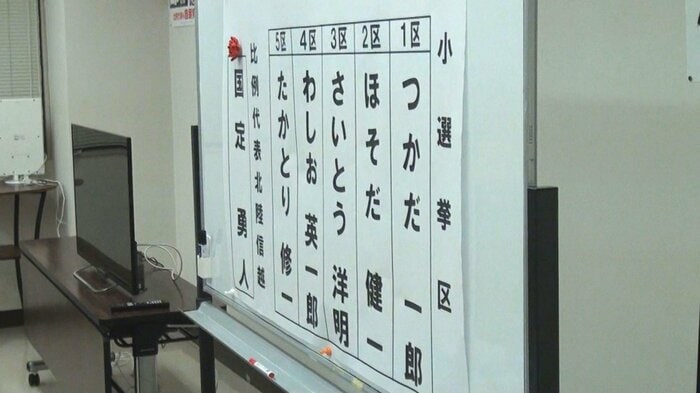 小選挙区
1区 つかだ 一郎
2区 ほそだ 健一
3区 さいとう 洋明
4区 わしお 英一郎
5区 たかとり 修一
比例代表北陸信越
国定 勇人